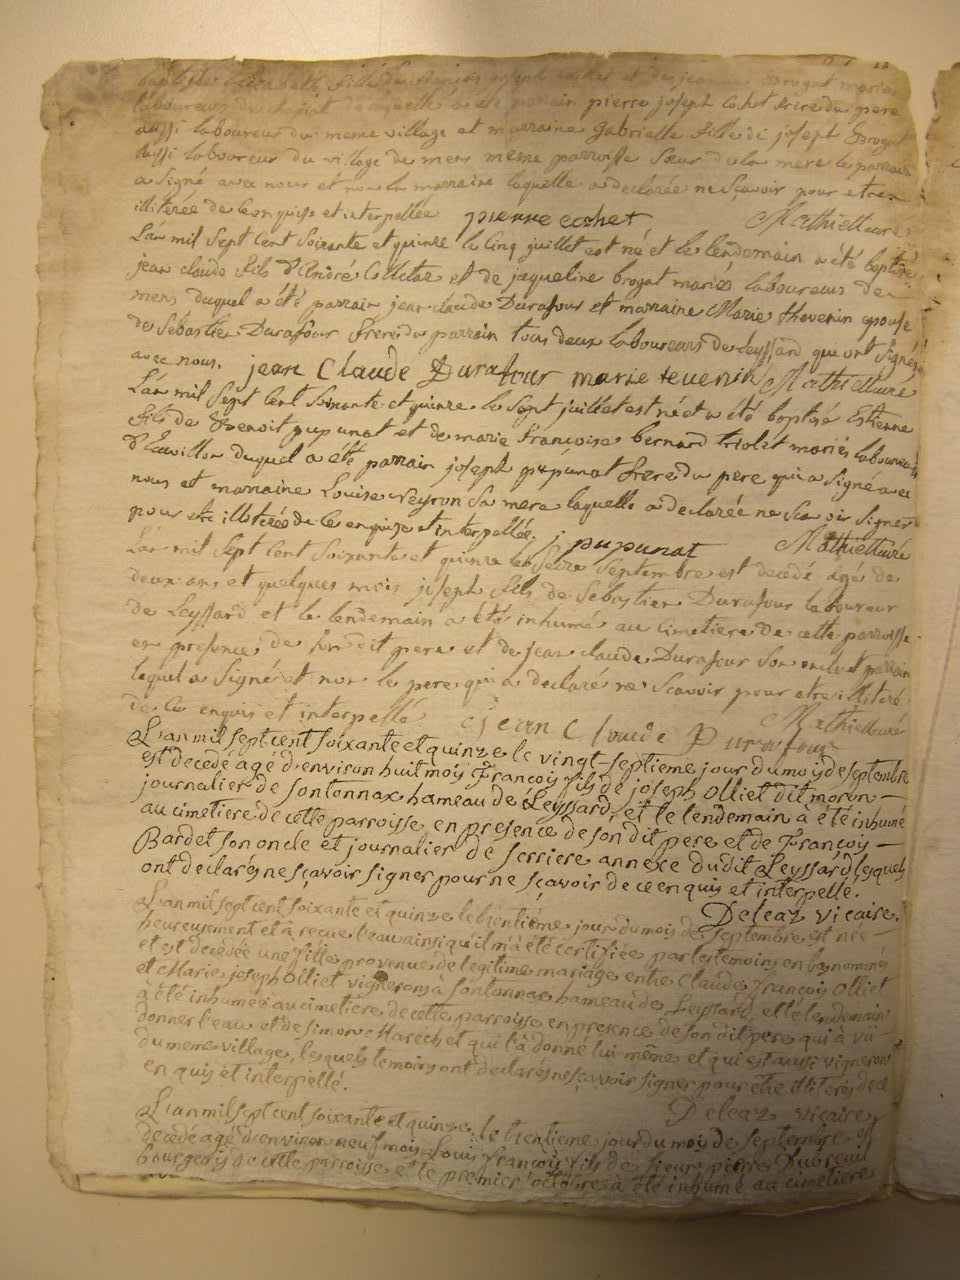 baptisée Elisabeth fille de françois joseph cochet et de jeanne Brogat mariés
laboureurs de laquelle a été parrain pierre joseph cochet frere du pere
aussi laboureur du meme village et marraine Gabrielle fille de joseph Brogat
aussi laboureur du village de mens meme parroisse Sœur de la mere le parrain
a signé avec nous et non la marraine laquelle a declarée ne sçavoir pour etre
illiterée de ce enquise et interpellée pierre cochet Mathieu curé
L'an mil sept cent soixante et quinze le cinq juillet est né et le lendemain a été baptisé
jean claude fils d'André Colletaz et de jacqueline brogat mariés laboureurs de
mens duquel a été parrain jean claude Durafour et marraine Marie thevenin epouse
de Sebastien Durafour frere du parrain tous deux laboureurs de Leyssard qui ont signés
avec nous. jean Claude Durafour marie tevenin Mathieu curé
L'an mil sept cent soixante et quinze le sept juillet est né et a été baptisé Estienne
fils de Benoit pupunat et de marie françoise bernard triolet mariés laboureurs
d'Escuvillon duquel a été parrain joseph pupunat frere du pere qui a signé avec
nous et marraine Louise Veyron sa mere laquelle a declarée ne scavoir signer
pour etre illiterée de ce enquise et interpellée. j pupunat Mathieu curé
L'an mil sept cent soixante et quinze le seize septembre est decedé agé de
deux ans et quelques mois joseph fils de Sebastien Durafour laboureur
de Leyssard et le lendemain a été inhumé au cimetiere de cette parroisse
en presence de son dit pere et de jean claude Durafour son oncle et parrain
lequel a signé et non le pere qui a declaré ne scavoir pour etre illiteré
de ce enquis et interpellé jean Cloude Durafour Mathieu curé
L'an mil sept cent soixante et quinze le vingt-septieme jour du moy de septembre
est decedé agé d'environ huit moy François fils de joseph Olliet dit moron
journalier de Sontonnax hameau de Leyssard, et le lendemain à été inhumé
au cimetiere de cette parroisse en presence de son dit pere et de François
Bardet son oncle et journalier de serriere annexe du dit Leyssard lesquels
ont declarés ne sçavoir signer pour ne sçavoir de ce enquis et interpellé.
Deleaz vicaire.
L'an mil sept cent soixante et quinze le trentième jour du mois de septembre est née
heureusement et à reçue l'eau ainsi qu'il m'a été certifiée par les temoins en bas nommés
et est decedée une fille provenue de legitime mariage entre Claude François Olliet
et Marie joseph Olliet vignerons à Sontonnax hameau de Leyssard, et le lendemain
à été inhumée au cimetiere de cette parroisse en presence de son dit pere qui à vu
donner l'eau et de simon Marechet qui l'à donné lui même et qui est aussi vigneron
du meme village, lesquels temoins ont declarés ne scavoir signer pour être illiterés de ce
enquis et interpellé.
Deleaz vicaire
L'an mil sept cent soixante et quinze, le trentieme jour du mois de septembre est
decedé agé d'environ neuf mois Louis François fils de sieur pierre Dubreuil
bourgeois de cette parroisse et le premier octobre à été inhumé au cimetiere